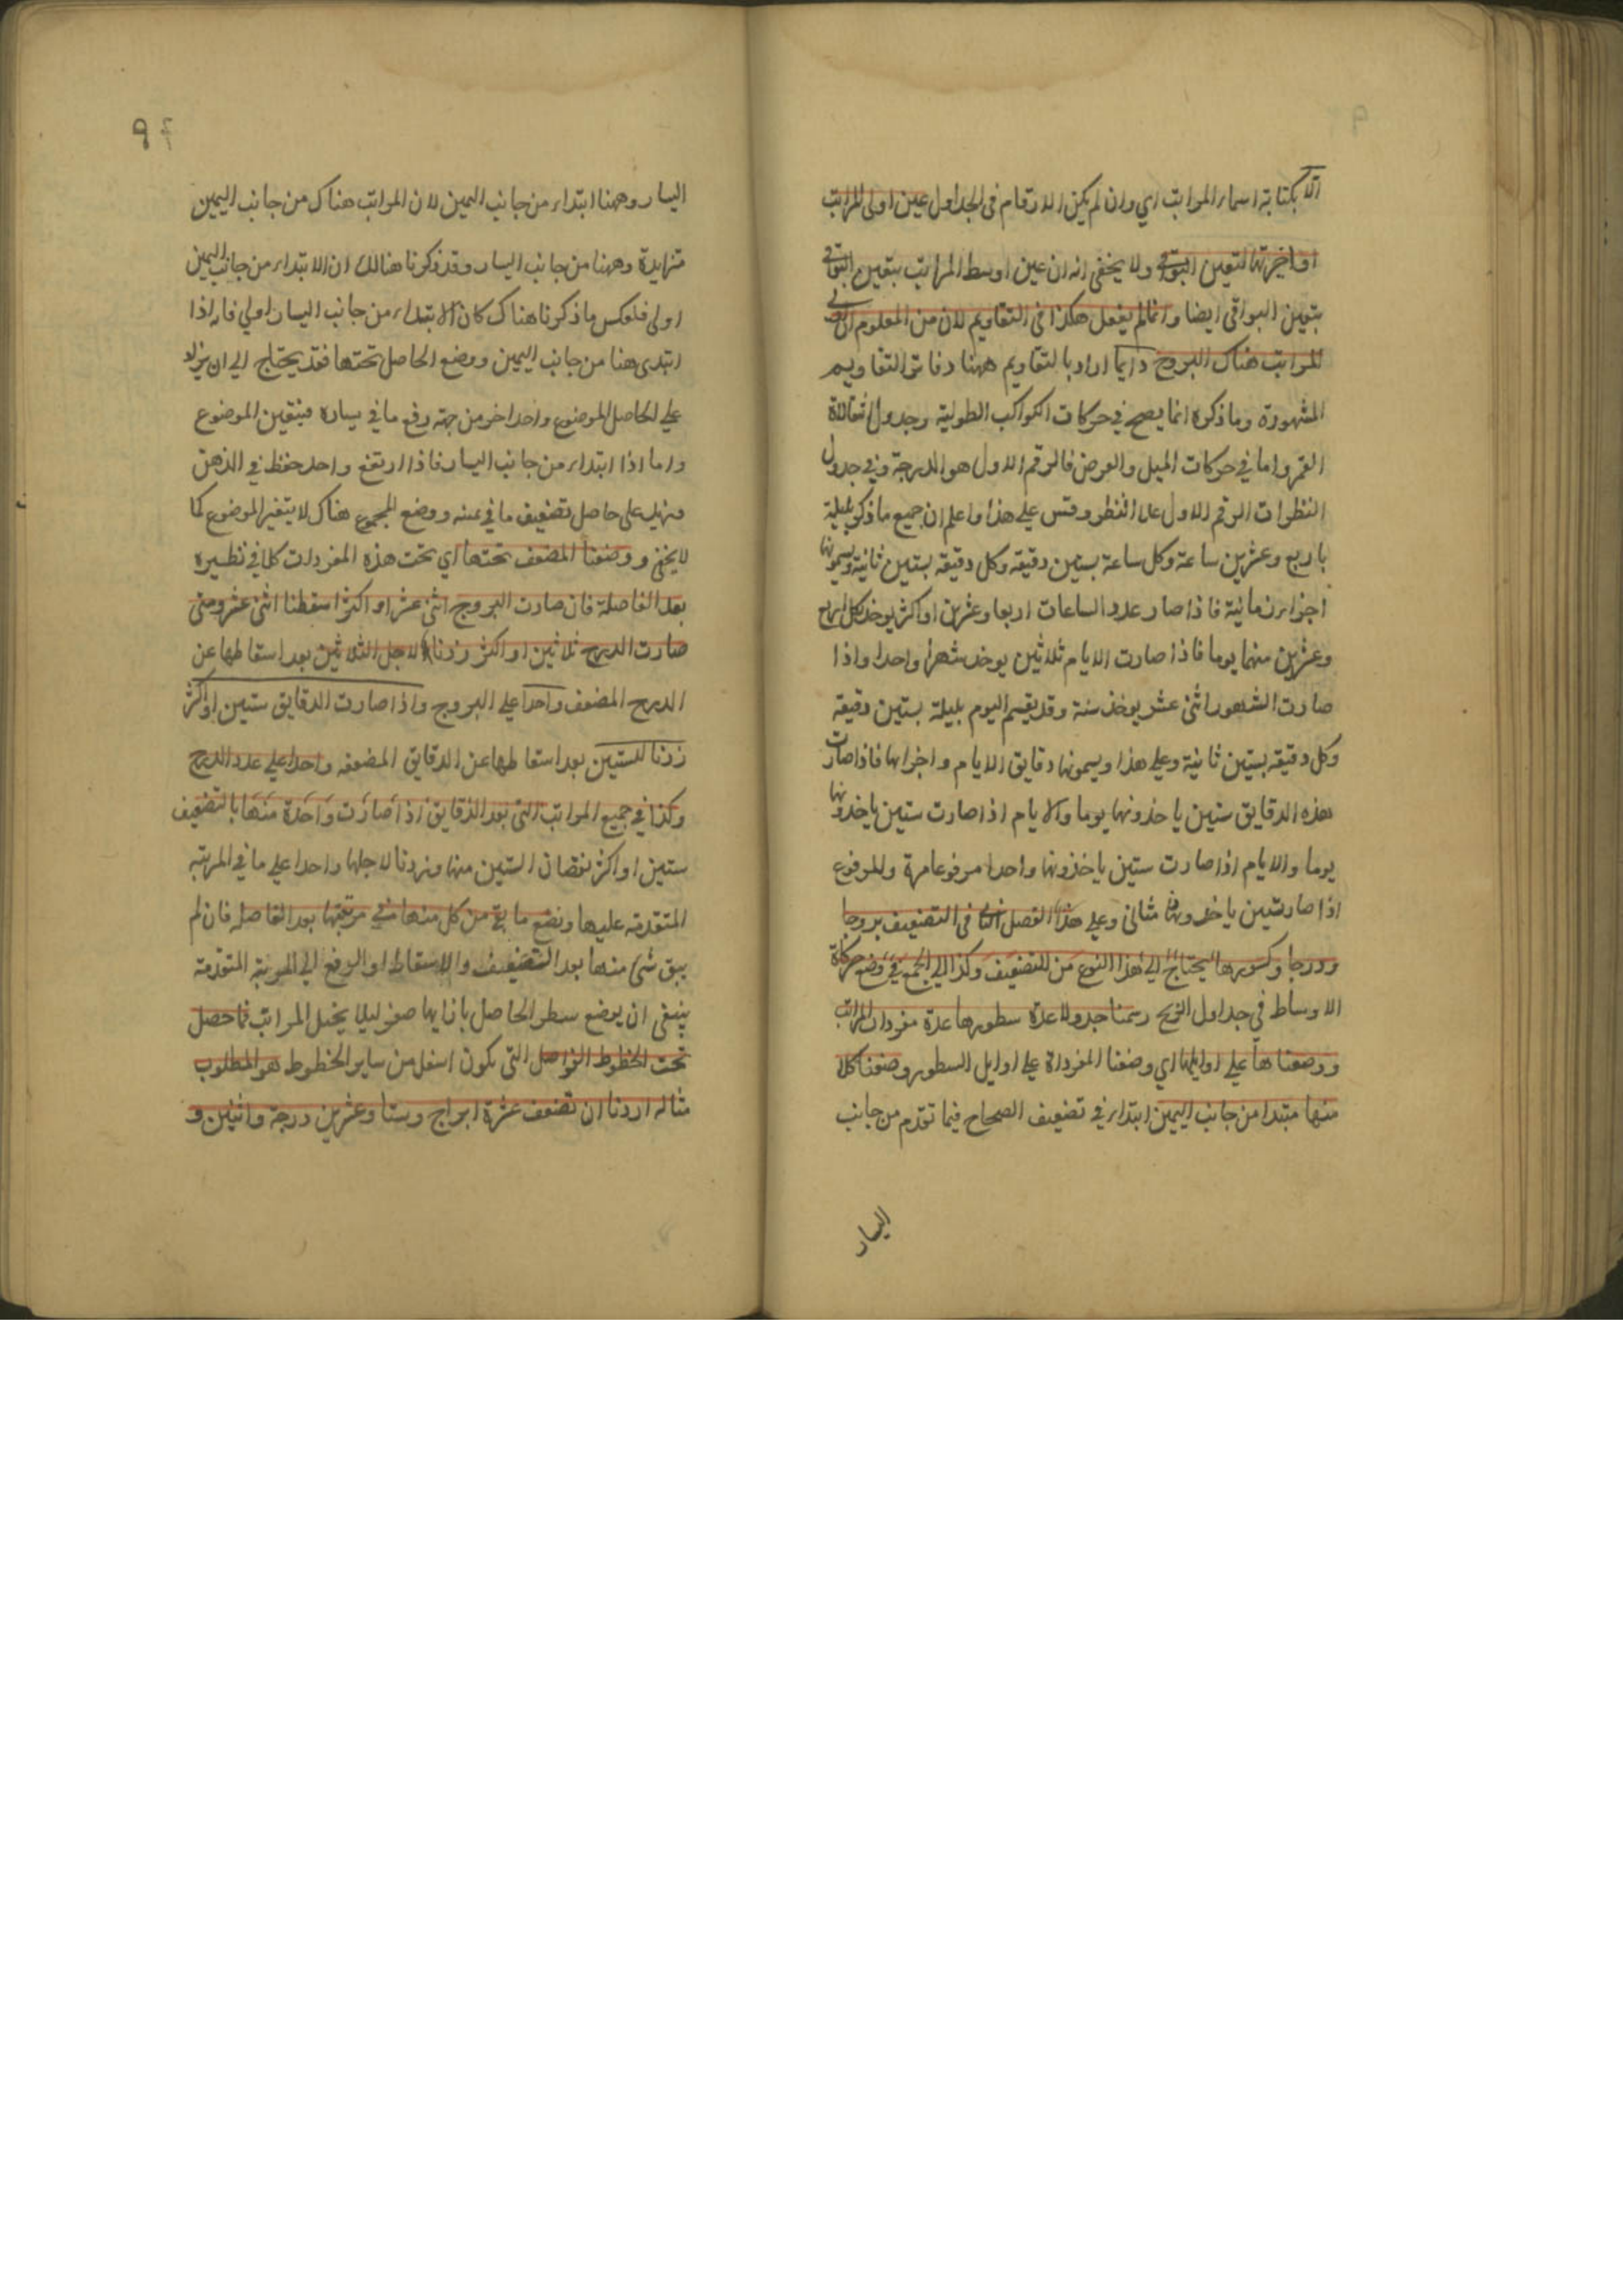 الا بكتابة اسماء المراتب اي وان لم يكن الارقام في الجداول عين اولى المراتب
او اخيرتها لتعين البواقي ولا يخفى انه ان عين اوسط المراتب يتعين البواقي
بتعين البواقي ايضا وانما لم يفعل هكذا في التقاويم لان من المعلوم ان اولى
المراتب هناك البروج دايما اراد بالتقاويم ههنا دفاتر التقاويم
المشهورة وما ذكره انما يصح في حركات الكواكب الطولية وجدول
القمر واما في حركات الميل والعرض فالرقم الاول هو الدرجة وفي جدول
النظرات الرقم الاول على النظر وقس على هذا واعلم ان جميع ما ذكر بليلة
باربع وعشرين ساعة وكل ساعة بستين دقيقة وكل دقيقة بستين ثانية ويسمونها
اجزاء زمانية فاذا صار عدد الساعات اربعا وعشرين او اكثر يوخذ لكل اربع
وعشرين منها يوما فاذا صارت الايام ثلاثين يوخذ شهرا واحدا واذا
صارت الشهور اثنى عشر يوخذ سنة وقد يقسم اليوم بليلة بستين دقيقة
وكل دقيقة بستين ثانية وعلى هذا ويسمونها دقايق الايام واجزاها فاذا صارت
هذه الدقايق ستين ياخذونها يوما والايام اذا صارت ستين ياخذونها
يوما والايام اذا صارت ستين ياخذونها واحدا مرفوعا مرة وللمرفوع
اذا صار ستين ياخذونها مثاني وعلى هذا الفصل في التضعيف بروجا
ودرجا وكسورها يحتاج الى هذا النوع من التضعيف وكذا الى الجمع في وضع حركات
الاوساط في جداول الزيج رسمنا جدولا عدة سطورها عدة مفردات المراتب
ووضعناها على اوايلها اي وضعنا المفردة على اوايل السطور وضعنا كلا
منها مبتدا من جانب اليمين ابتداء في تضعيف الصحاح فيما تقدم من جانب
اليسار
٩
اليسار وههنا ابتداء من جانب اليمين لان المراتب هناك من جانب اليمين
متزايدة وههنا من جانب اليسار وقد ذكرنا هنالك ان الابتداء من جانب اليمين
اولى فلعكس ما ذكرنا هناك كان الابتداء من جانب اليسار اولى فانه اذا
ابتدى هنا من جانب اليمين ووضع الحاصل تحتها فقد يحتاج الى ان يزاد
على الحاصل الموضوع واحدا اخر من جهة رفع ما في يساره فيتغير الموضوع
واما اذا ابتداء من جانب اليسار فاذا ارتفع واحد حفظ في الذهن
ويزيد على حاصل تضعيف ما في يمينه ووضع المجموع هناك لا يتغير الموضوع كما
لا يخفى ووضعنا المضعف تحتها اي تحت هذه المفردات كلا في نظيره
بعد الفاصلة فان صارت البروج اثنى عشر او اكثر اسقطنا اثنى عشر ومتى
صارت الدرج ثلاثين او اكثر زدنا لاجل الثلاثين بعد اسقاطها عن
الدرج المضعف واحدا على البروج واذا صارت الدقايق ستين او اكثر
زدنا للستين بعد اسقاطها عن الدقايق المضعفه واحدا على عدد الدرج
وكذا في جميع المراتب التي بعد الدقايق اذا صارت واحدة منها بالتضعيف
ستين او اكثر نقصان الستين منها وزدنا لاجلها واحدا على ما في المرتبه
المتقدمة عليها ونضع ما بقي من كل منها في مرتبتها بعد الفاصله فان لم
يبق شئ منها بعد التضعيف والاسقاط او الرفع الى المرتبة المتقدمة
ينبغى ان يوضع سطر الحاصل بازايها صفر ليلا يختل المراتب فما حصل
تحت الخطوط الفواصل التي يكون اسفل من ساير الخطوط هو المطلوب
مثاله اردنا ان نضعف عشرة ابراج وستا وعشرين درجة واثنين و